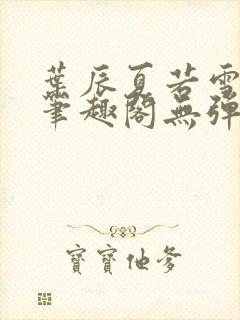 葉辰夏若雪
筆趣閣無彈
寶寶他爹